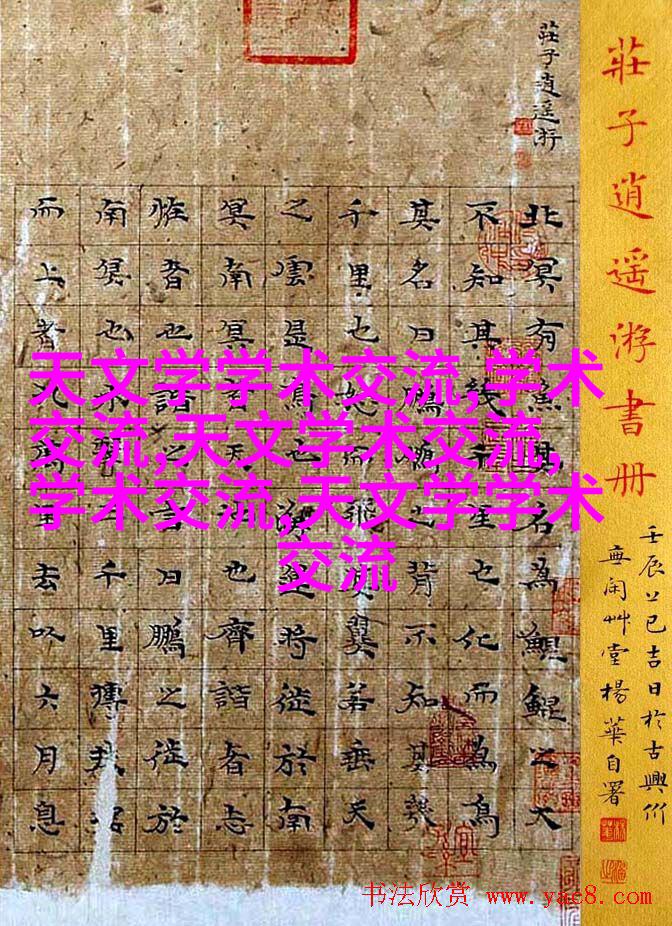 莊子逍遥游書册
壬辰乙巳吉日於古興
閑艸堂楊華自署
莊子逍遥游
北冥有魚其名為鯤鯤之大
不知其幾千里也化而為鳥
其名曰鵬鵬之背不知其幾
千里也怒而飛其翼若垂天
之雲是鳥也海運將徙於南
冥南冥者天池也齊諧者志
恠者也諧之言曰鵬之徙於
南冥也水擊三千里摶扶搖
而上者九萬里去以六月息
天文学学术交流,学术
交流,天文学术交流,
学术交流,天文学学术
交流
书法欣赏 www.yac8.com